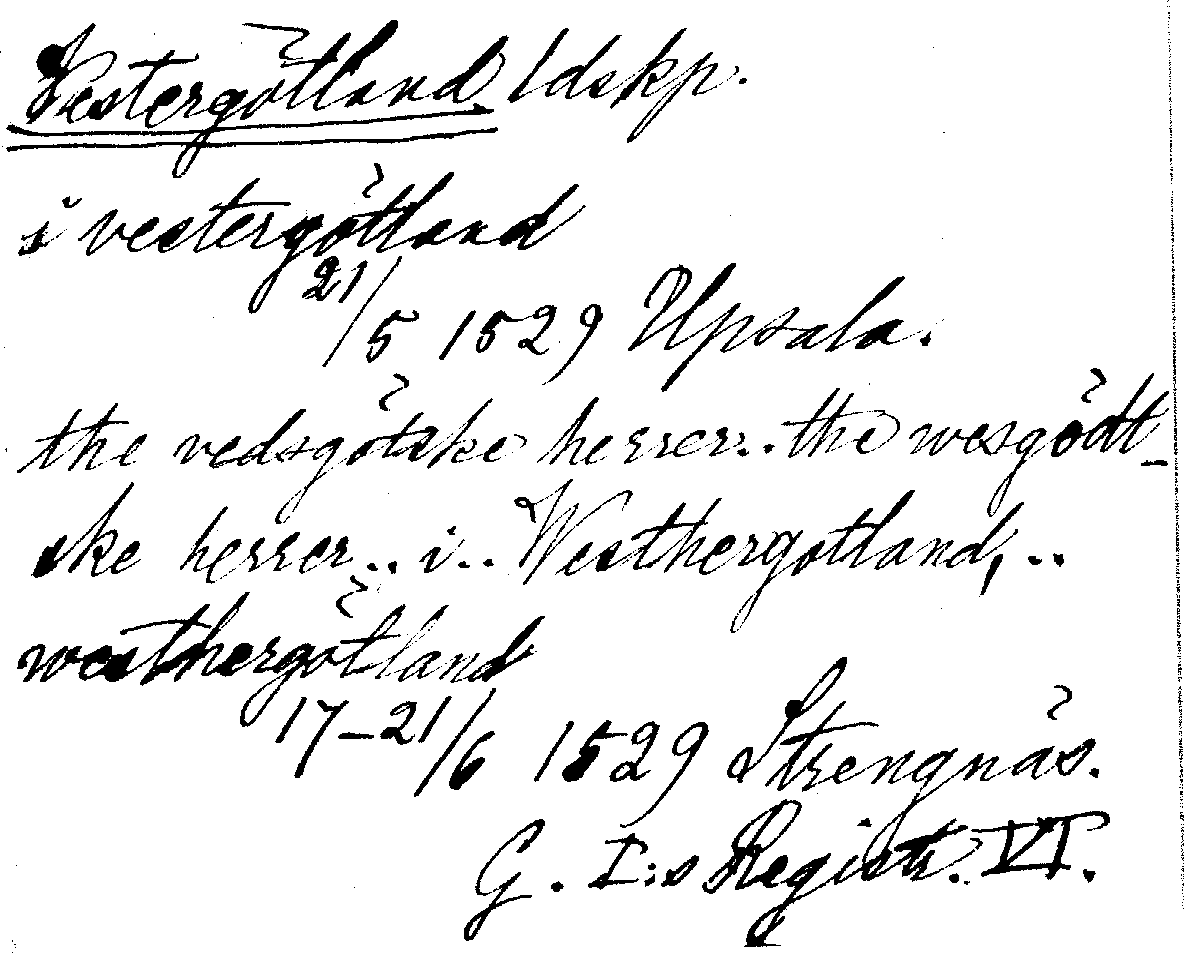 Vestergötland. ldskp.
i vestergötland
21/5 1529 Upsala.
the vedsgötske herrer... the wesgödt-
ske herrer... i... Westhergotland, ..
westhergötland
17-21/6 1529 Strengnäs.
G. I:s Registr. VI.